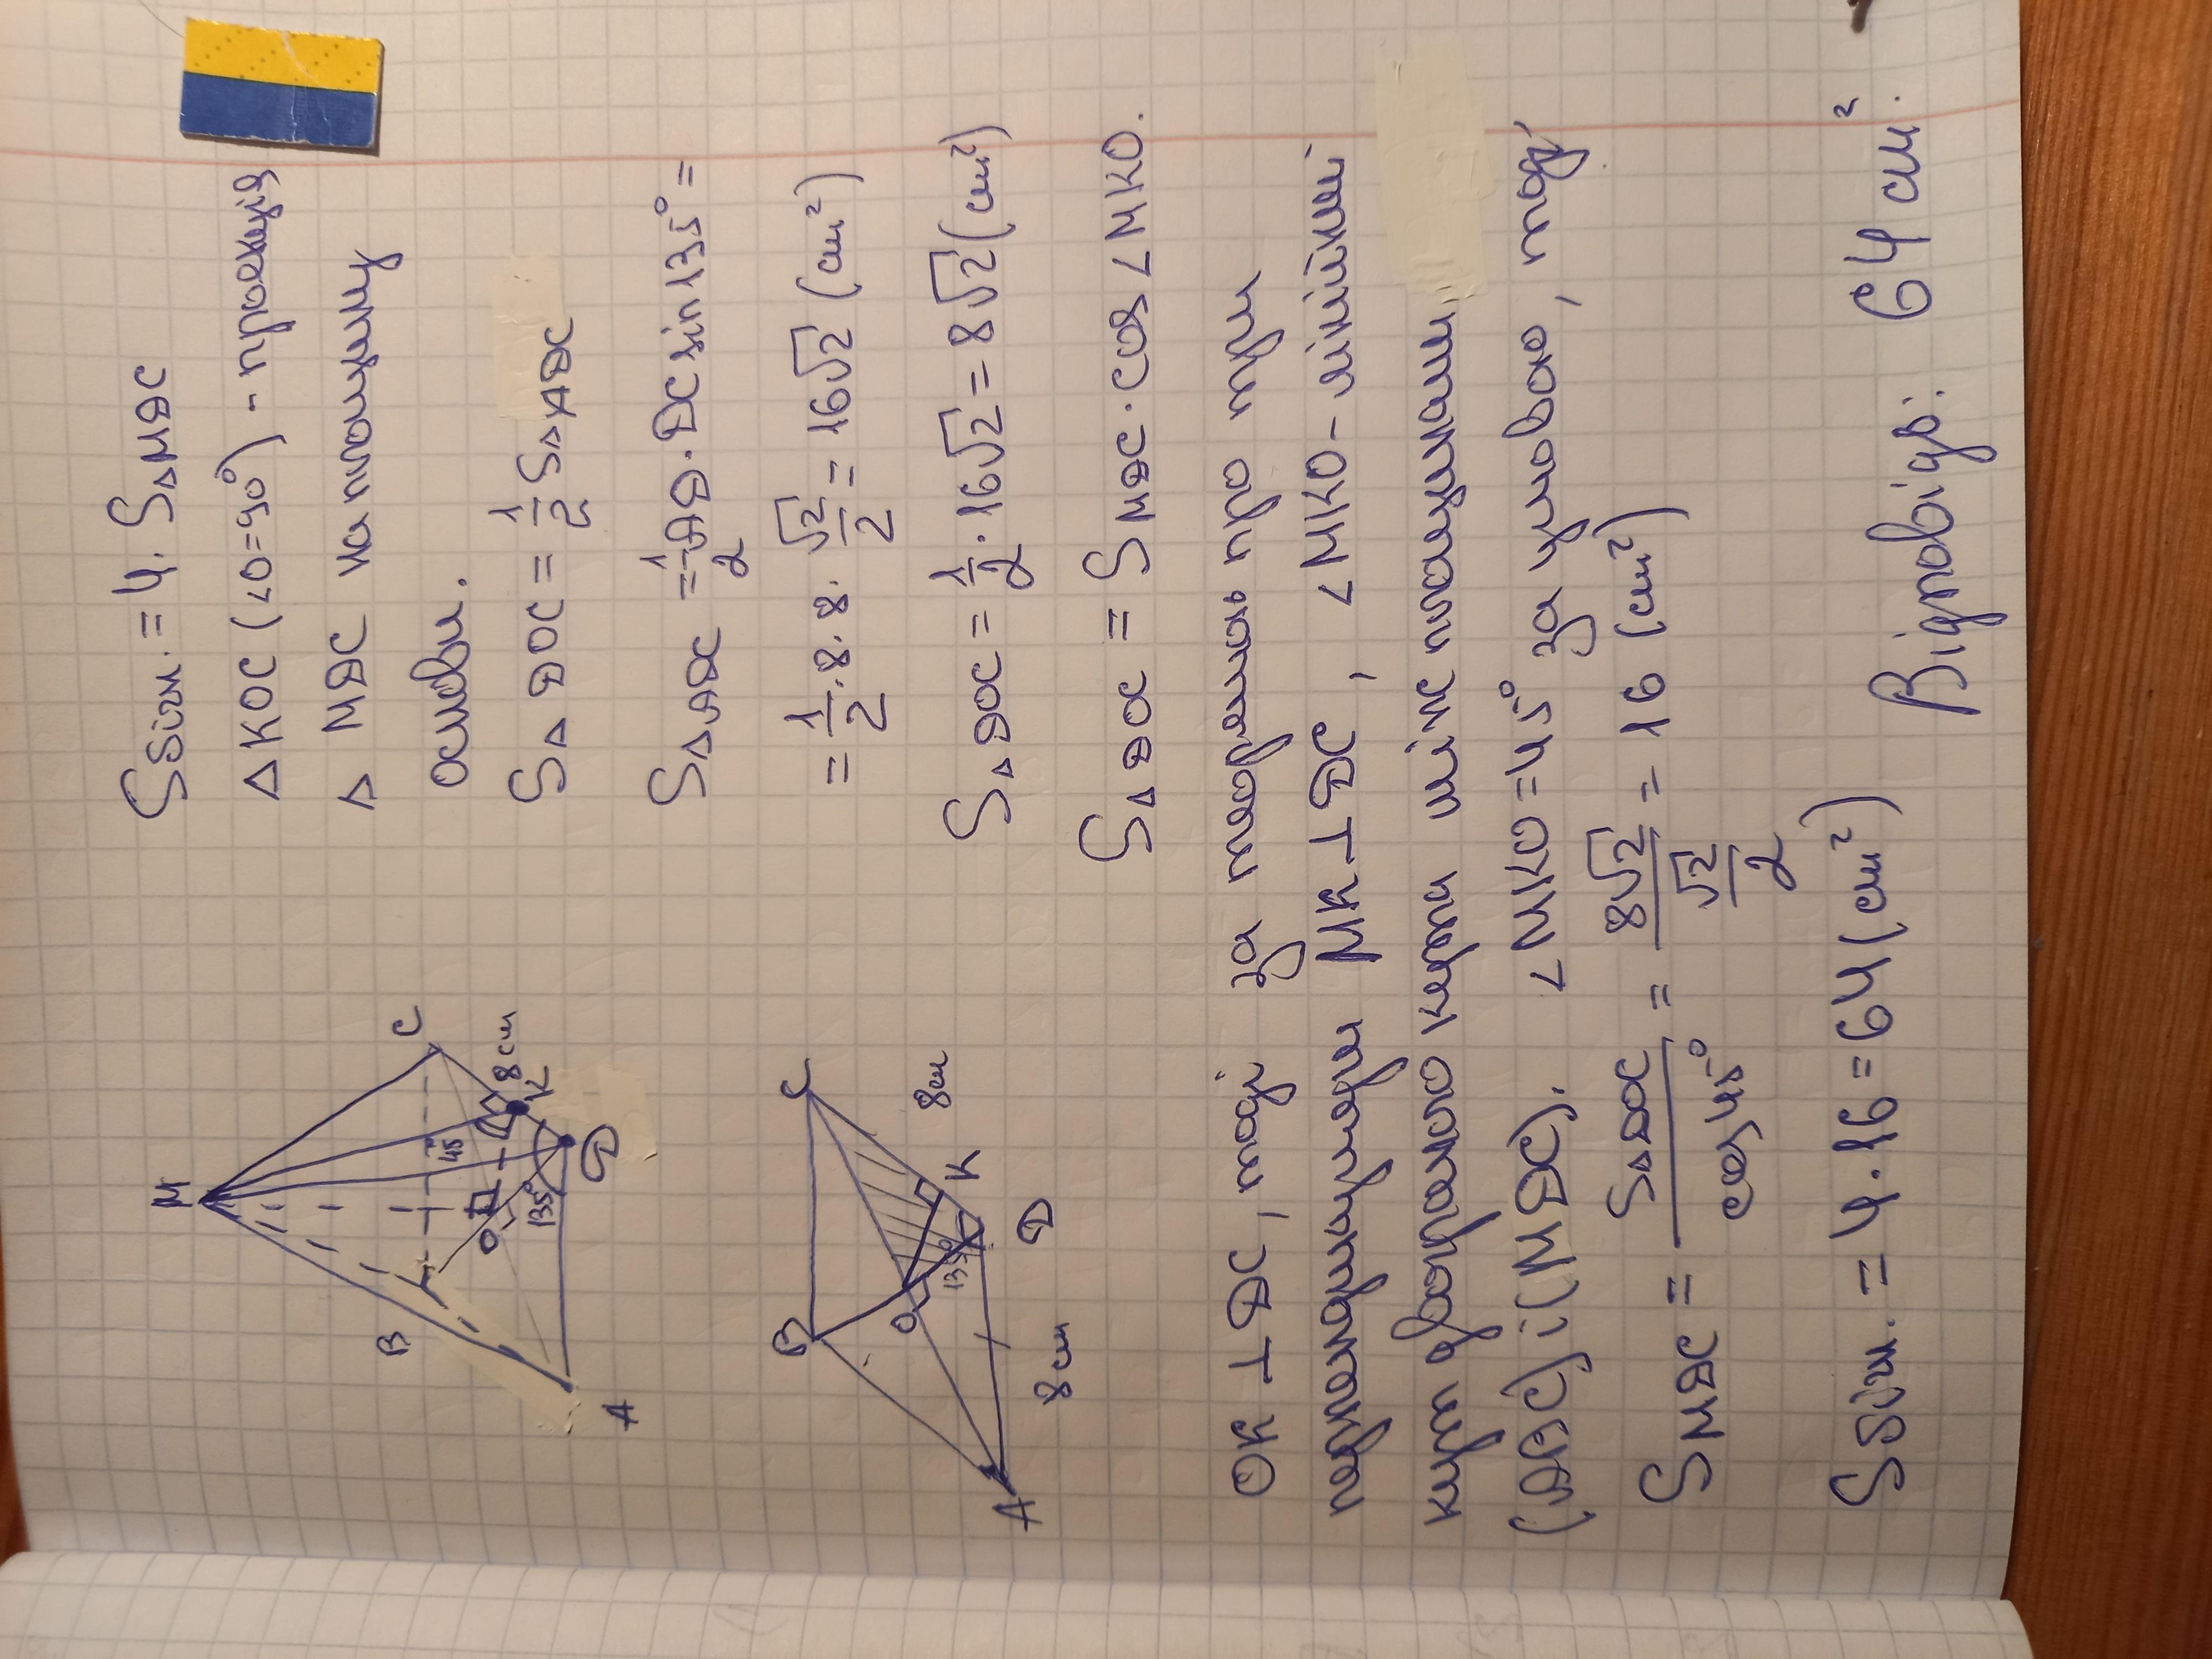 M
C
B
O
45°
8 см
K
135°
D
A
B
C
O
135°
K
8см
A
D
8 см
Sбіч. = 4. S△MDC
△KOC (∠O=90°) - проекція
△ MDC на площину
основи.
S△ DOC = 1/2 S△ADC
S△ADC = 1/2 AD · DC sin 135° =
= 1/2 · 8 · 8 · √2/2 = 16√2 (см²)
S△DOC = 1/2 · 16√2 = 8√2 (см²)
S△DOC = S MDC · cos ∠MKO.
OK ⊥ DC, тоді за теоремою про три
перпендикуляри MK ⊥ DC, ∠MKO - лінійний
кут двогранного кута між площинами
(ABC) і (MDC). ∠MKO = 45° за умовою, тоді
S MDC = S△DOC / cos 45° = 8√2 / √2/2 = 16 (см²)
Sбіч. = 4 · 16 = 64 (см²)
Відповідь: 64 см².